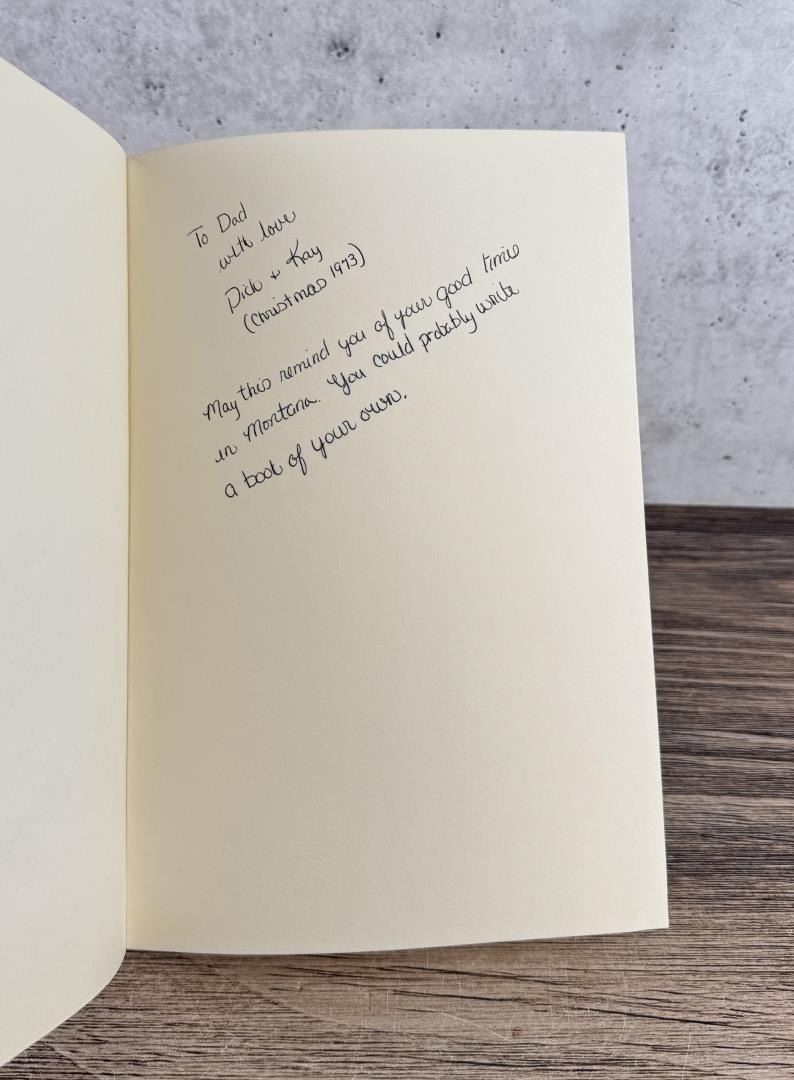 To Dad
with love
Dick + Kay
(Christmas 1973)
May this remind you of your good times
in Montana. You could probably write
a book of your own.